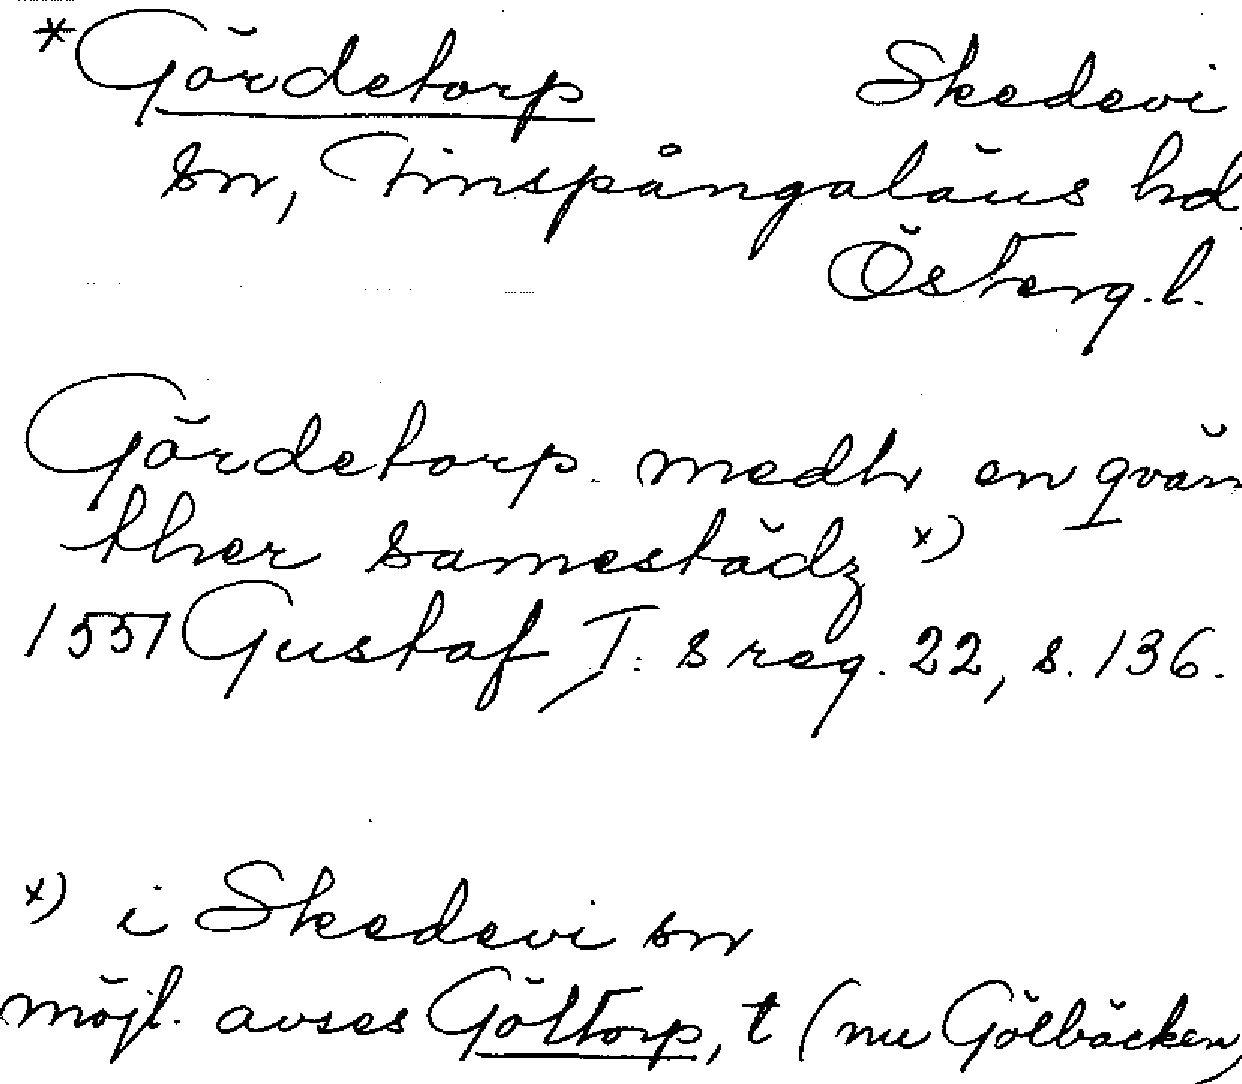 *Gördetorp Skedevi
sn, Finspångaläns hd,
Österg. l.
Gördetorp medh en qvärn
ther samestädz x)
1551 Gustaf I:s reg. 22, s. 136.
x) i Skedevi sn
möjl. avses Göltorp, t (nu Gölbäcken)